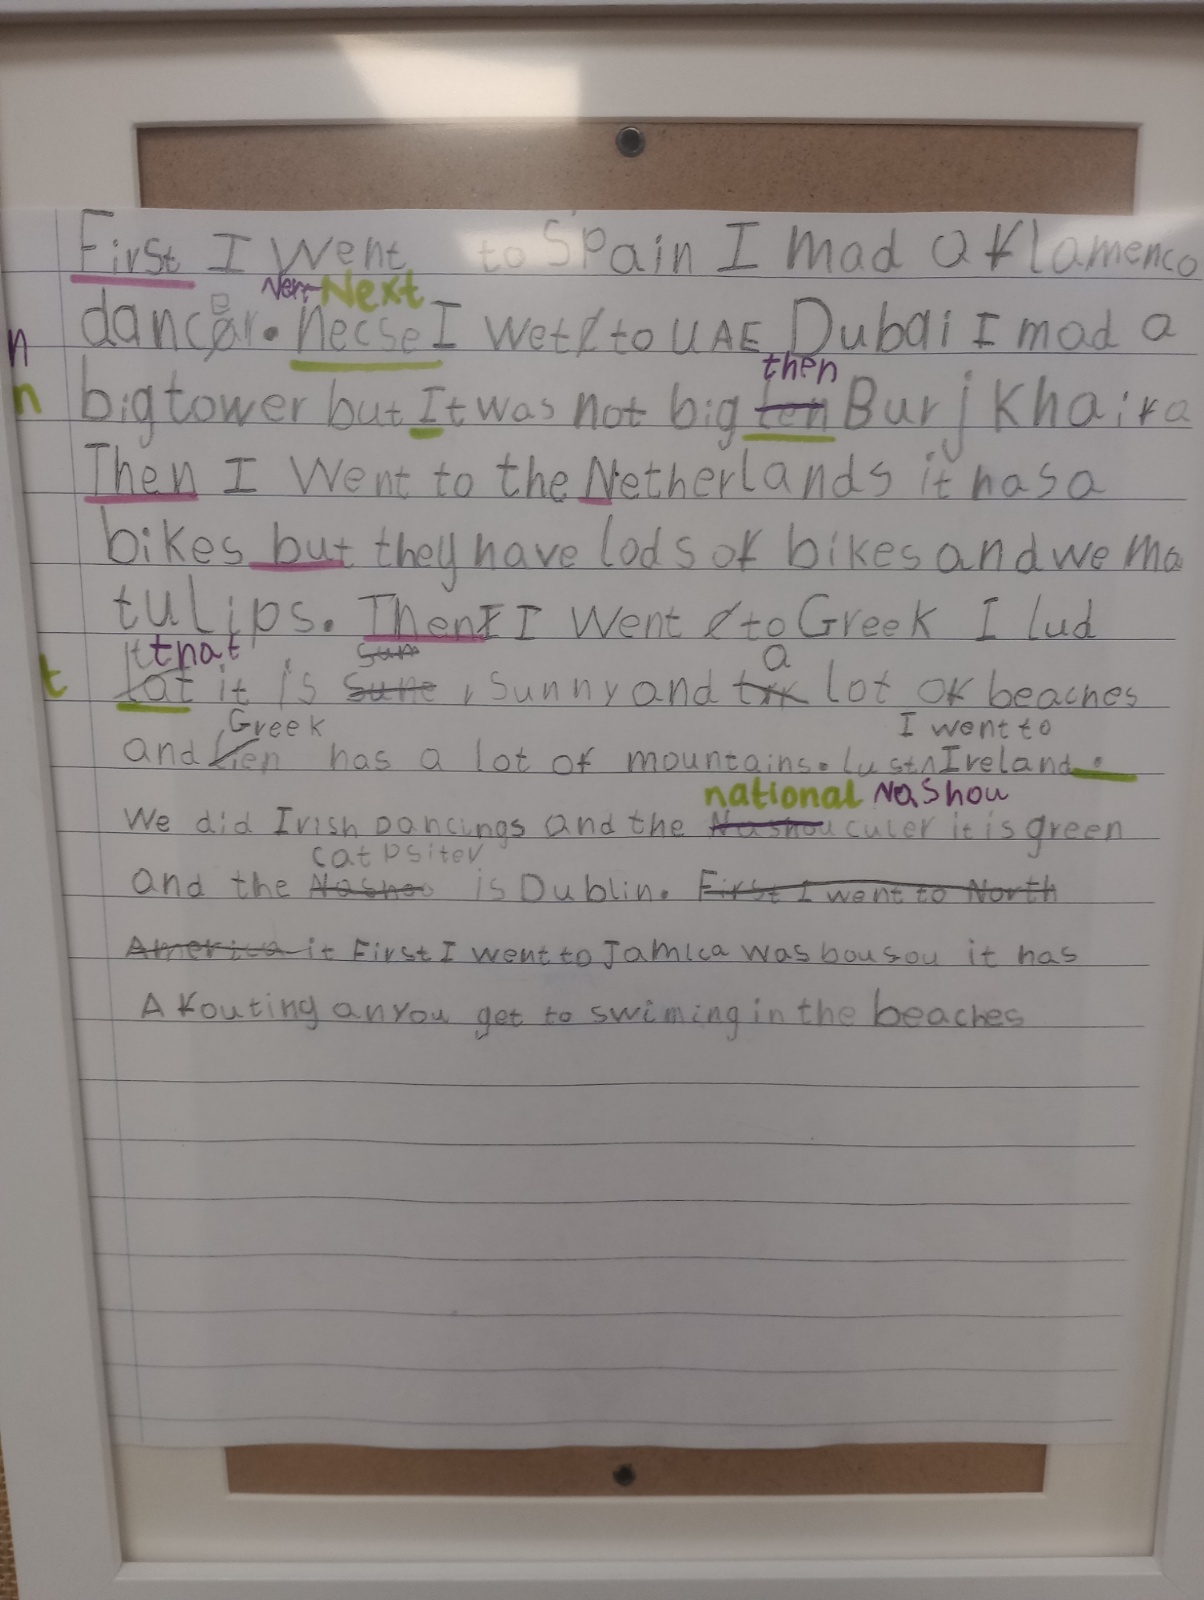 First I went to Spain I mad a flamenco
e Nen Next
dancar. necse I wet to UAE Dubai I mad a
n then
n bigtower but It was not big ten Burj Khaira
Then I went to the Netherlands it has a
bikes but they have lods of bikes and we ma
tulips. Then I I went to Greek I lud
It that Sun a
t tat it is Sune, Sunny and lot of beaches
Greek I went to
and has a lot of mountains. lust Ireland.
national NaShou
We did Irish Dancings and the Nashou culer it is green
cat psitev
and the Nashoo is Dublin. First I went to North
America it First I went to Jamica was bousou it has
A fouting an you get to swiming in the beaches